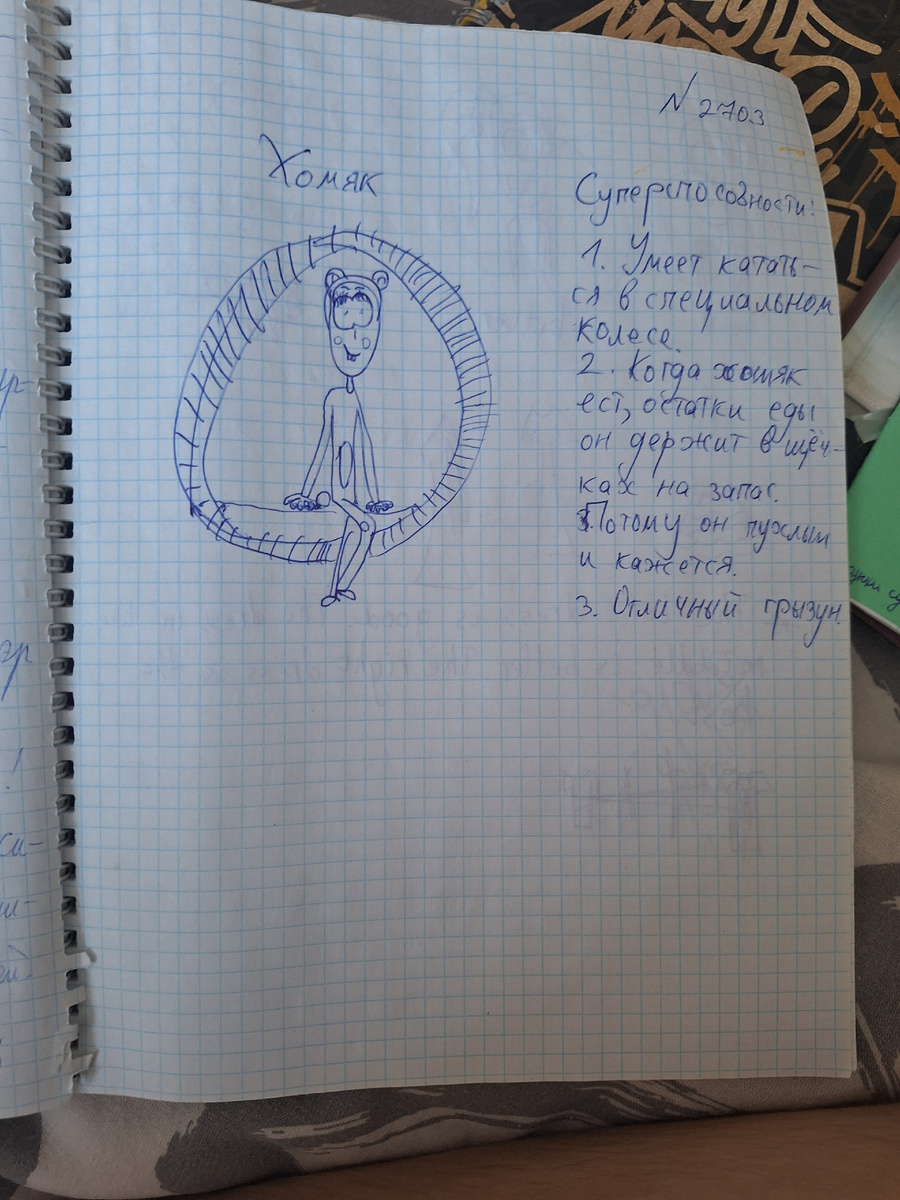 N 2703
Хомяк
Суперспособности:
1. Умеет катать-
ся в специальном
колесе.
2. Когда хомяк
ест, остатки еды
он держит в щёч-
ках на запас.
Потому он пухлым
и кажется.
3. Отличный грызун.